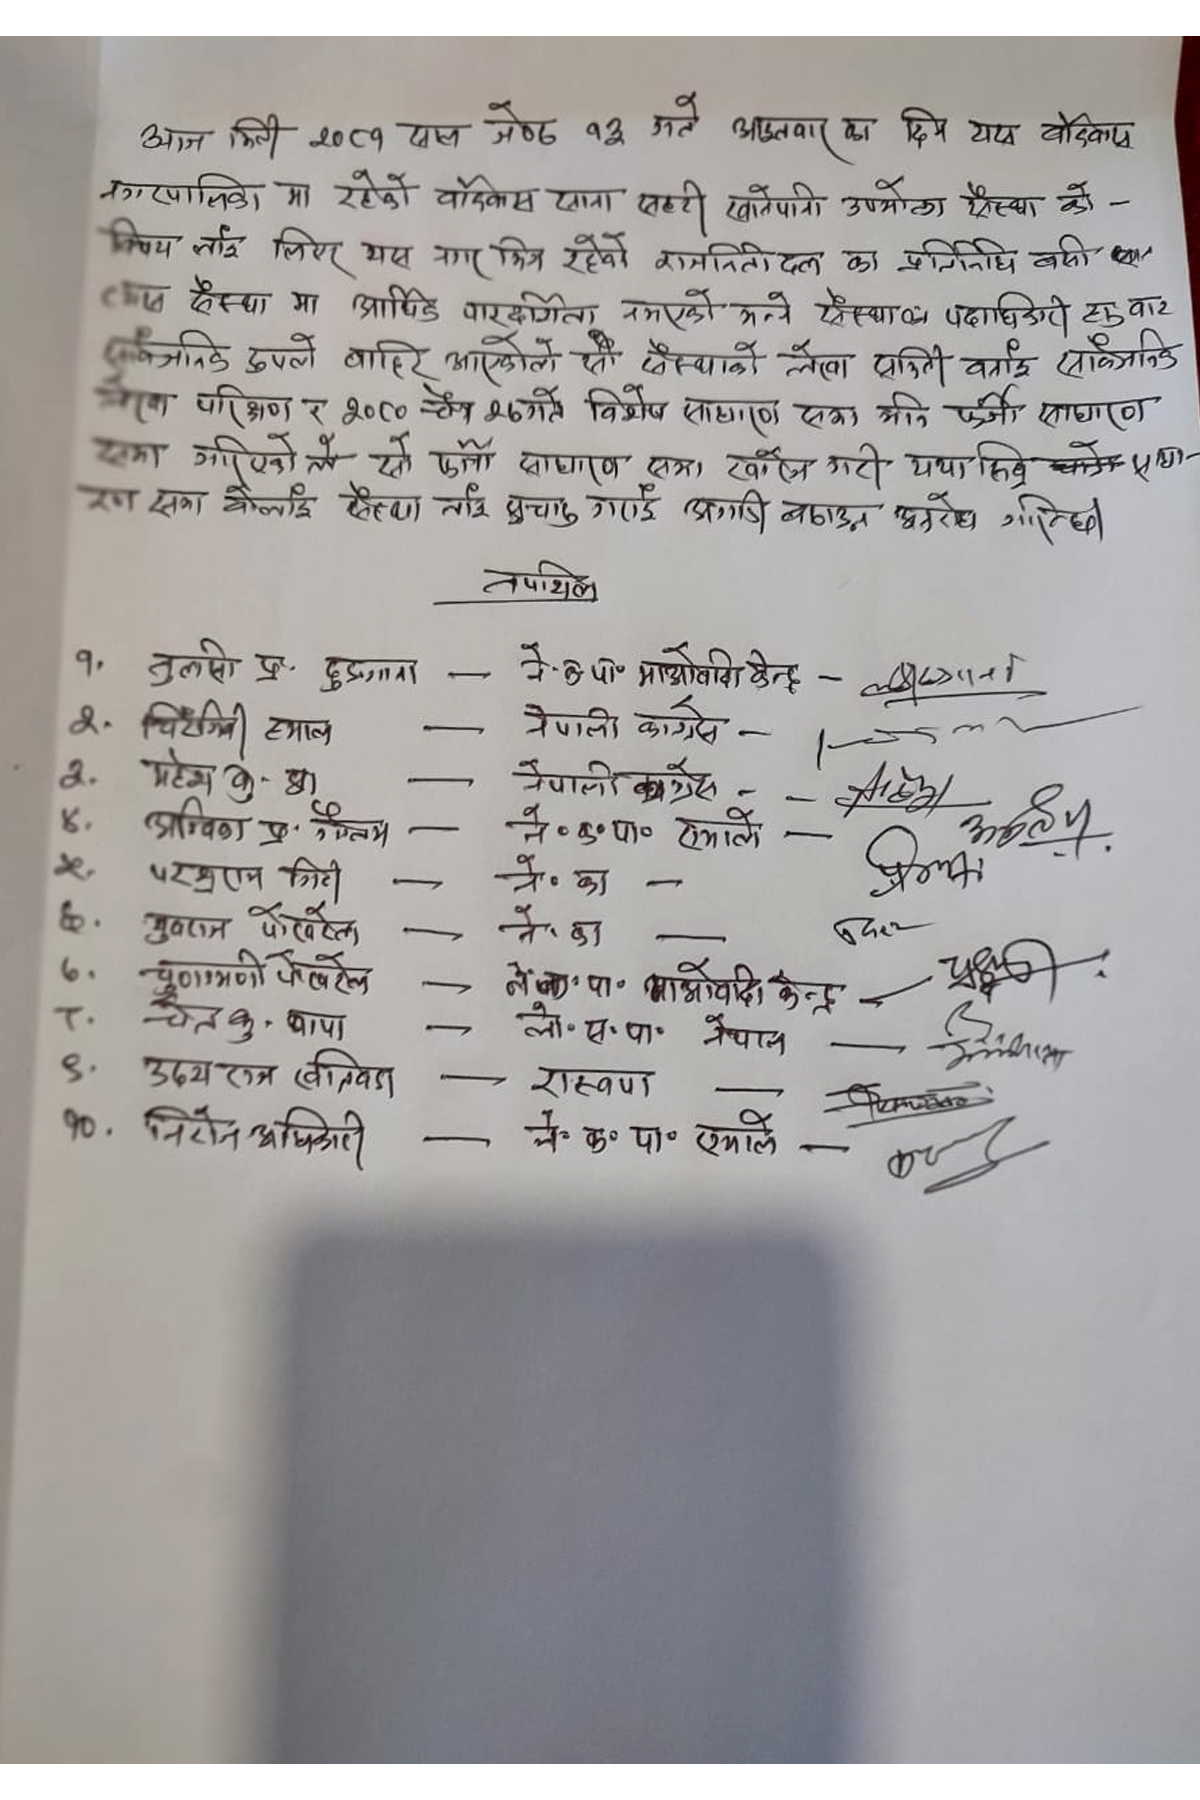 आज मिती २०८१ साल जेष्ठ १३ गते आइतवार का दिन यस बाँदिकास
नगरपालिका मा रहेको बाँदिकास साना सहरी खानेपानी उपभोक्ता सँस्था को -
बिषय लाई लिएर यस नगर भित्र रहेको राजनितीदल का प्रतिनिधि बसी
सँस्था मा आर्थिक पारदर्शिता नभएको भन्ने सँस्थाका पदाधिकारी हरु बाट
सार्वजनिक रुपले बाहिर आएकोले सो सँस्थाको लेखा समिती बनाई सार्वजनिक
लेखा परिक्षण र २०८० चैत्र २७गते विशेष साधारण सभा भनि फर्जी साधारण
सभा गरिएको ले सो फर्जी साधारण सभा खारेज गरी यथा सिघ्र साधा-
रण सभा बोलाई सँस्था लाई सुचारु गराई अगाडी बढाउन अनुरोध गरिन्छ।
तपसिल
१. तुलसी प्र. ढुङ्गाना — ने.क.पा॰ माओवादि केन्द्र -
२. चिरंजिवी हमाल — नेपाली काग्रेस -
३. महेश कु. श्रा — नेपाली काग्रेस - -
४. अम्बिका प्र. गौतम — ने॰क॰पा॰ एमाले —
५. परशुराम गिरी — ने॰ का —
६. युवराज पोखरेल — ने॰ का —
७. चुणामणी पोखरेल — ने॰क॰पा॰ माओवादि केन्द्र —
८. चेत कु. थापा — लो॰स॰पा॰ नेपाल —
९. उदय राज खतिवडा — रास्वपा —
१०. निरोज अधिकारी — ने॰ क॰ पा॰ एमाले —